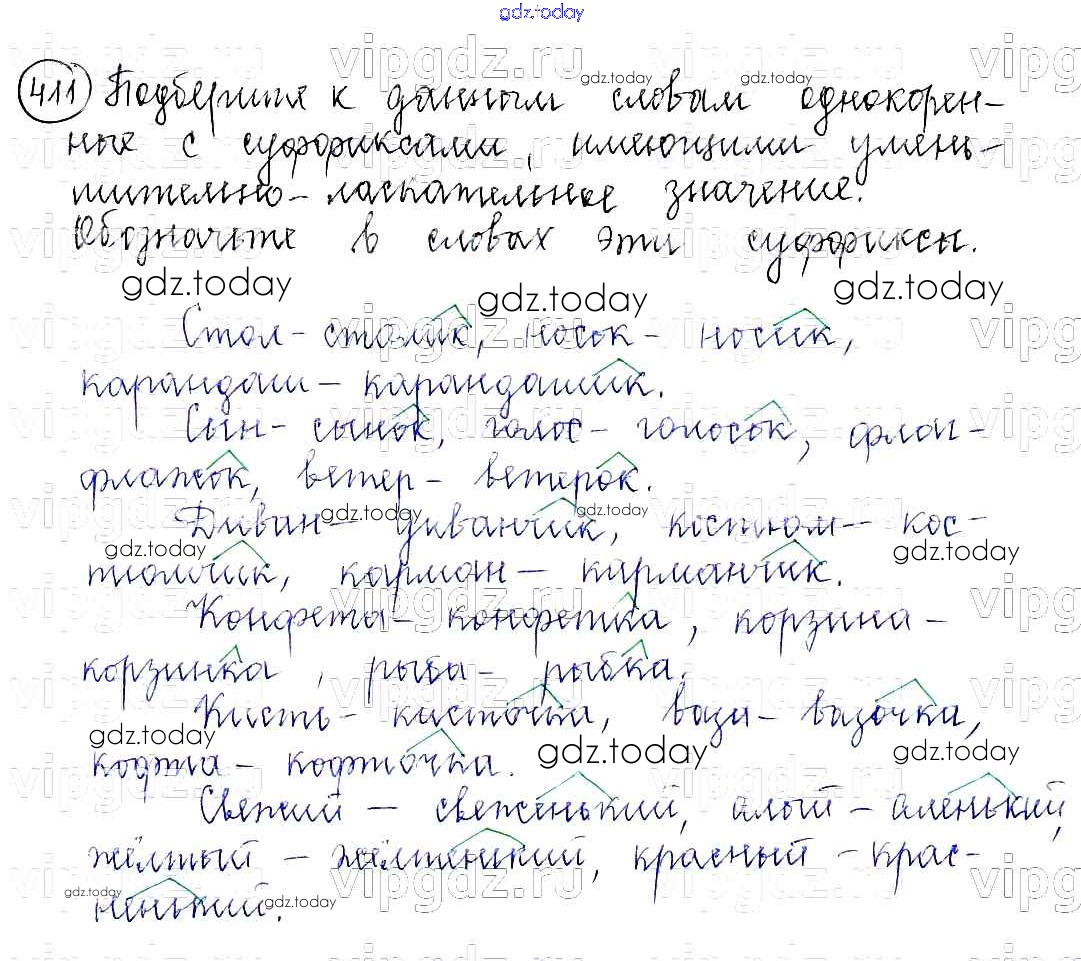 gdz.today
411 Подберите к данным словам однокорен-
ные с суффиксами, имеющими умень-
шительно-ласкательное значение.
Обозначьте в словах эти суффиксы.
gdz.today gdz.today gdz.today
Стол - столик, носок - носик,
карандаш - карандашик.
Сын - сынок, голос - голосок, флаг -
флажок, ветер - ветерок.
Диван - диванчик, костюм - кос-
тюмчик, карман - карманчик.
Конфета - конфетка, корзина -
корзинка, рыба - рыбка.
Кисть - кисточка, ваза - вазочка,
кофта - кофточка.
Свежий - свеженький, алый - аленький,
жёлтый - жёлтенький, красный - крас-
ненький.